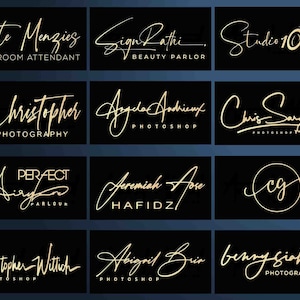 te Menzies
ROOM ATTENDANT
SignRathi
BEAUTY PARLOR
Studio 10
hristopher
PHOTOGRAPHY
Angela Andrieux
PHOTOSHOP
Chris Say
PHOTOSHOP
PERFECT
Airy
PARLOUR
Jeremiah Aose
HAFIDZ
cg
topher Wittich
PHOTOSHOP
Abigail Brin
PHOTOSHOP
benny sia
PHOTOGRA